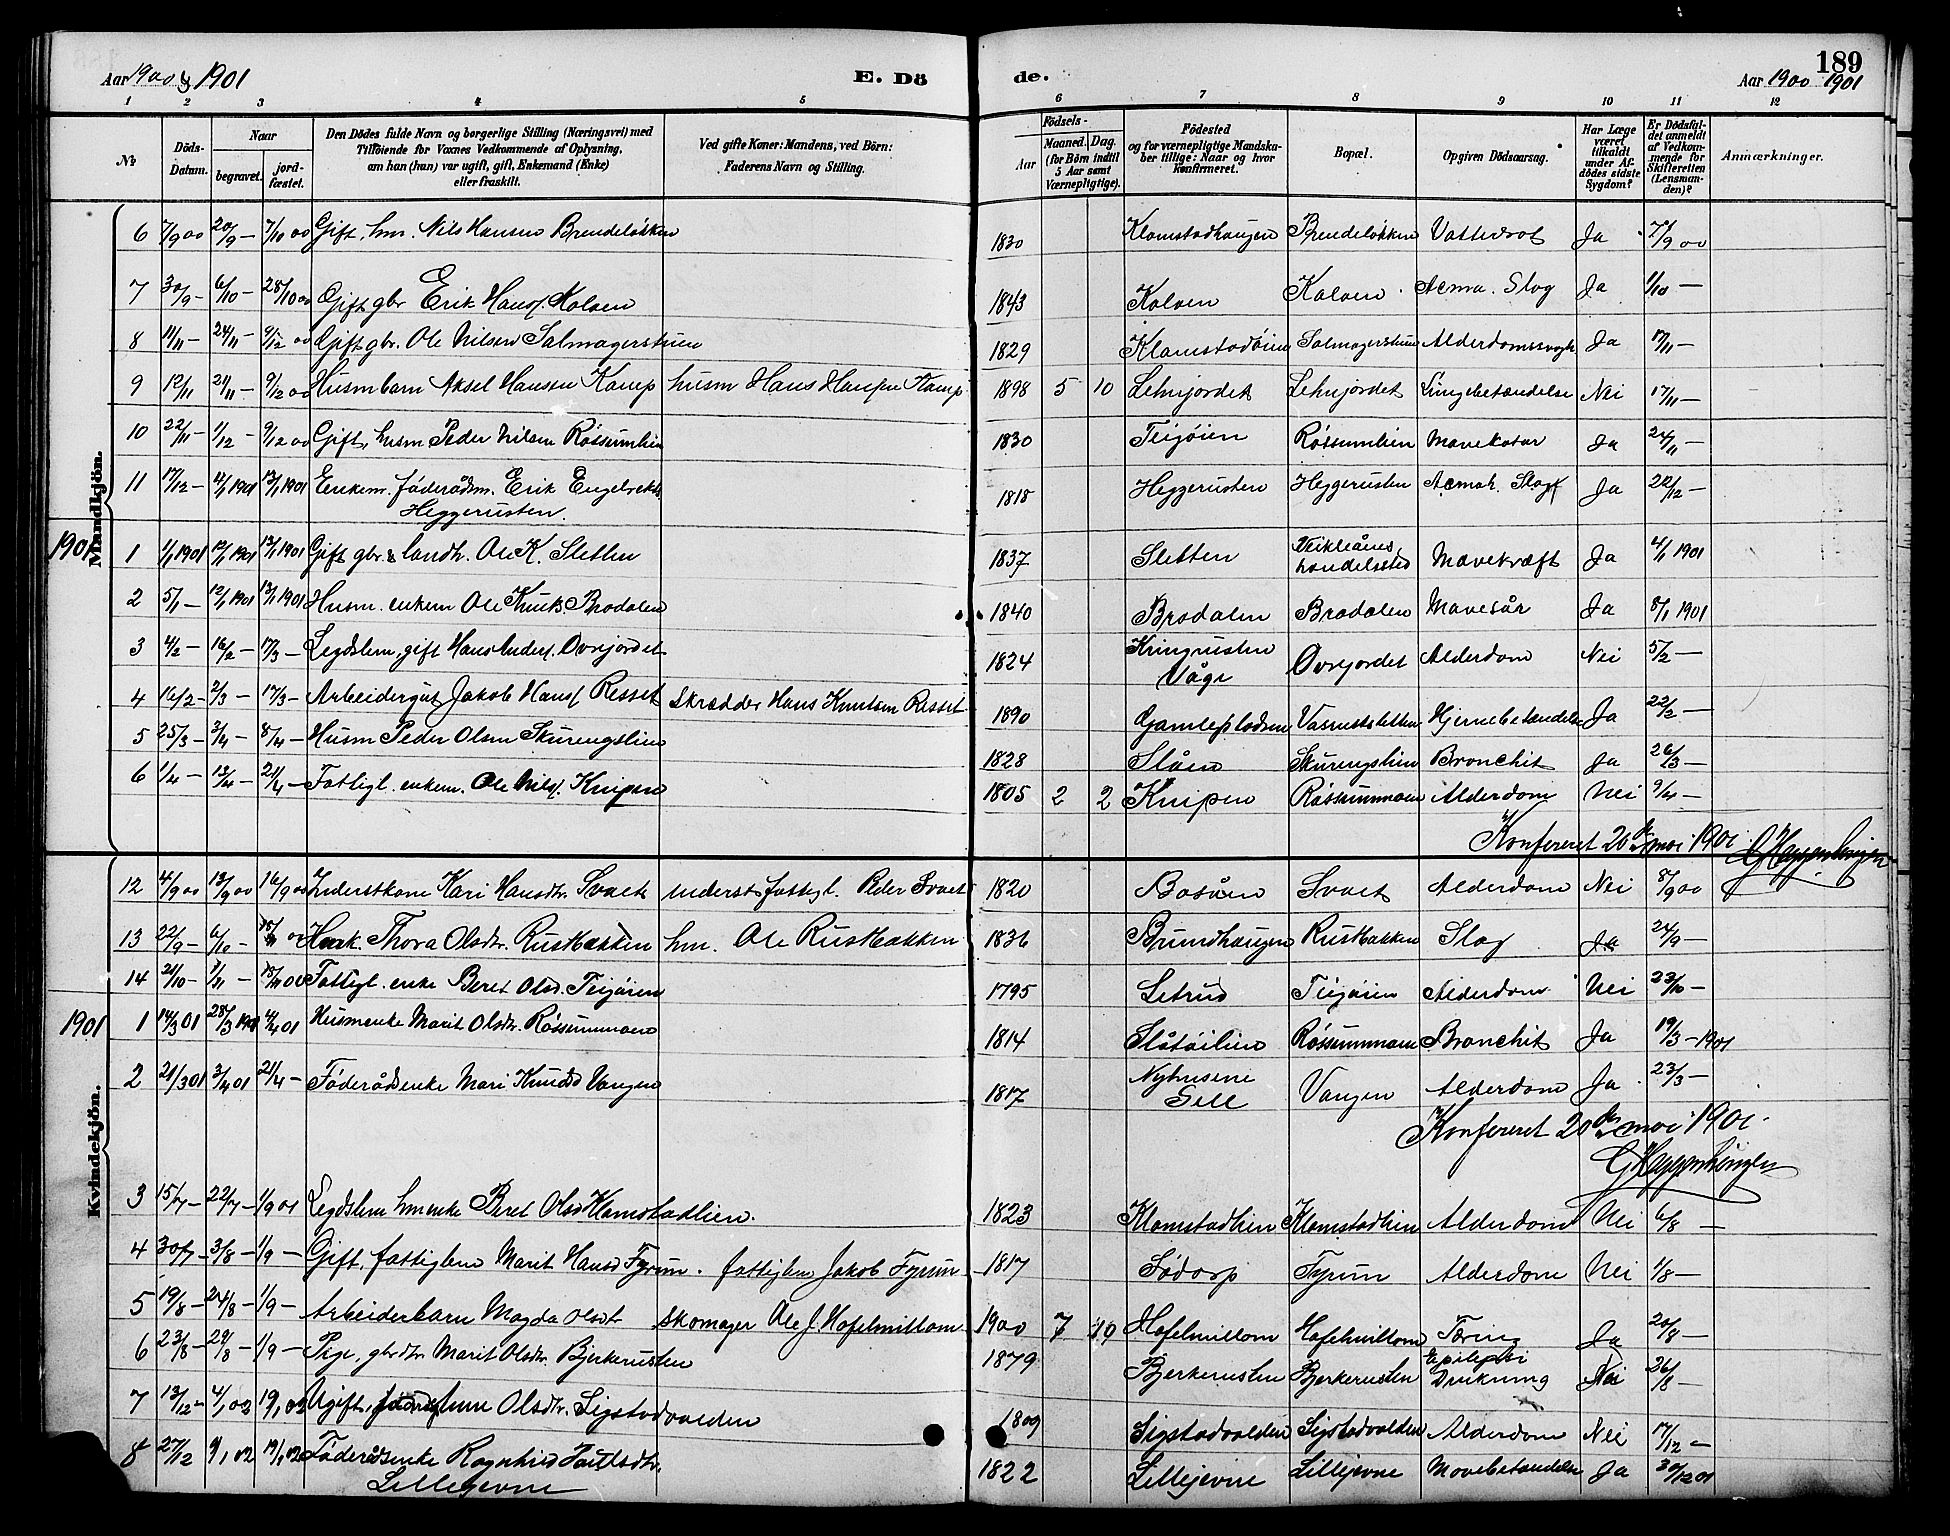 Aar 1900 & 1901 E. Dö de. Aar 1900 1901 189
1 2 3 4 5 6 7 8 9 10 11 12
No Döds-Datum. Naar begravet. jord-fæstet. Den Dödes fulde Navn og borgerlige Stilling (Næringsvei) med Tilföiende for Voxnes Vedkommende af Oplysning, om han (hun) var ugift, gift, Enkemand (Enke) eller fraskilt. Ved gifte Koner: Mandens, ved Börn: Faderens Navn og Stilling. Födsels- Aar Maaned. Dag. (for Börn indtil 5 Aar samt Værnepligtige). Födested og for værnepligtige Mandskaber tillige: Naar og hvor konfirmeret. Bopæl. Opgiven Dödsaarsag. Har Læge været tilkaldt under Afdödes sidste Sygdom? Er Dödsfaldet anmeldt af Vedkommende for Skifteretten (Lensmanden)? Anmærkninger.
Mandkjön.
6 7/9 00 20/9 – 7/10 00 Gift, hm. Nils Hansen Brendeløkken 1830 Klomstadhaugen Brendeløkken Vattersot Ja 7/9 00
7 30/9 – 6/10 – 28/10 00 Gift gbr Erik Hansf. Kolven 1843 Kolven Kolven Asma. Slag Ja 1/10 –
8 11/11 – 24/11 – 9/12 00 Gift gbr. Ole Nilsen Salmagerstuen 1829 Klamstadøien Salmagerstuen Alderdomssvagh Ja 17/11 –
9 12/11 – 21/11 – 9/12 00 Husm barn Aksel Hansen Kamp husm Hans Hansen Kamp 1898 5 10 Lehnjordet Lehnjordet Lungebetændelse Nei 17/11 –
10 22/11 – 1/12 – 9/12 00 Gift, husm Peder Nilsen Røssumlien 1830 Teigøien Røssumlien Mavekatar Ja 24/11 –
11 17/12 – 4/1 1901 13/1 1901 Enkem. føderådsm. Erik Engelrekts. 1818 Heggerusten Heggerusten Asmah. Slag Ja 22/12 –
Heggerusten.
1901 1 1/1 1901 12/1 1901 13/1 1901 Gift gbr & landh. Ole K. Sletten 1837 Sletten Veikleånes handelssted Mavekræft Ja 4/1 1901
2 5/1 – 12/1 1901 13/1 1901 Husm. enkem Ole Knuts. Brodalen 1840 Brodalen Brodalen Mavesår Ja 8/1 1901
3 4/2 – 16/2 – 17/3 – Legdslem, gift Hans Andersf. Øvrejordet 1824 Kringrusten Vågå Øvrejordet Alderdom Nei 5/2 –
4 16/2 – 2/3 – 17/3 – Arbeidergut Jakob Hansf Resset Skrædder Hans Knutsen Resset 1890 Gamlepladsen Vasrustsletten Hjernebetændelse Ja 22/2 –
5 25/3 – 3/4 – 8/4 – Husm Peder Olsen Skurengslien 1828 Slåen Skurengslien Bronchit Ja 26/3 –
6 1/4 – 13/4 – 21/4 – Fattigl. enkem. Ole Nilsf. Knipen 1805 2 2 Knipen Røssummoen Alderdom Nei 9/4 –
Konfereret 20de mai 1901 G Heyerdahl
Kvindekjön.
12 4/9 00 13/9 00 16/9 00 Inderstkone Kari Hansdtr. Svaet inderst, fattigl. Peder Svaet 1820 Bosåen Svaet Alderdom Nei 8/9 00
13 22/9 – 6/10 – Husk. Thora Olsdtr. Rusbakken hm. Ole Rusbakken 1836 Brundhaugen Rusbakken Slag Ja 24/9 –
14 21/10 – 1/11 – Fattigl. enke Beret Olsd. Teigøien 1795 Letrud Teigøien Alderdom Nei 23/10 –
1901 1 14/3 01 28/3 1901 4/4 01 Husmenke Marit Olsdtr. Røssummoen 1814 Slåtøilien Røssummoen Bronchit Ja 19/3 – 1901
2 21/3 01 3/4 01 21/4 – Føderådsenke Mari Knudsd Vangen 1817 Nyhusene Sell Vangen Alderdom Ja 23/3 –
Konfereret 20de mai 1901.
3 15/7 – 22/7 – 1/9 01 Legdslem hmenke Beret Olsd Klomstadlien. 1823 Klomstadlien Klomstadlien Alderdom Nei 6/8 –
4 30/7 – 3/8 – 1/9 – Gift, fattiglem Marit Hansd Fyrun. fattiglem Jakob Fyrun 1817 Sødorp Fyrun Alderdom Nei 1/8 –
5 19/8 – 24/8 – 1/9 – Arbeiderbarn Magda Olsdt skomager Ole J. Hofelmillom 1900 7 19 Hofelmillom Hofelmillom Tæring Ja 20/8 –
6 23/8 – 29/8 – 1/9 – Pige, gbrdtr Marit Olsdtr. Bjerkerusten 1879 Bjerkerusten Bjerkerusten Epilepsi Drukning Nei 26/8 –
7 13/12 – 4/1 02 19/1 02 Ugift, Anne Olsdtr. Sigstadvolden 1809 Sigstadvolden Sigstadvolden Alderdom Nei 17/12 –
8 27/12 9/1 02 19/1 02 Føderådsenke Ragnhild 1822 Lillejevne Lillejevne Mavebetændelse Ja 30/12 01
Lillegevne